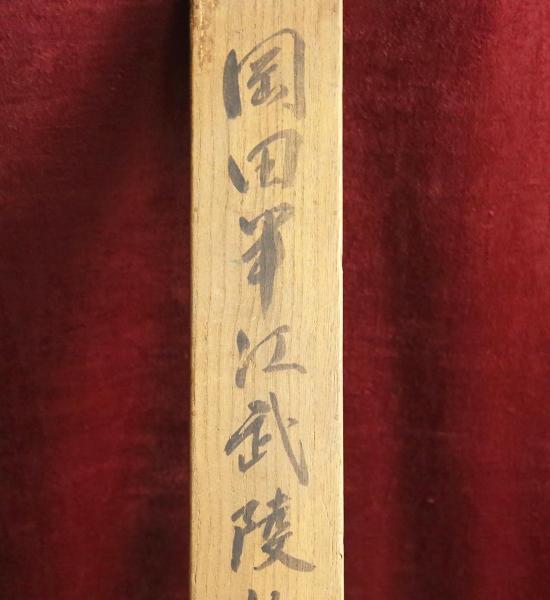 岡田半江武陵